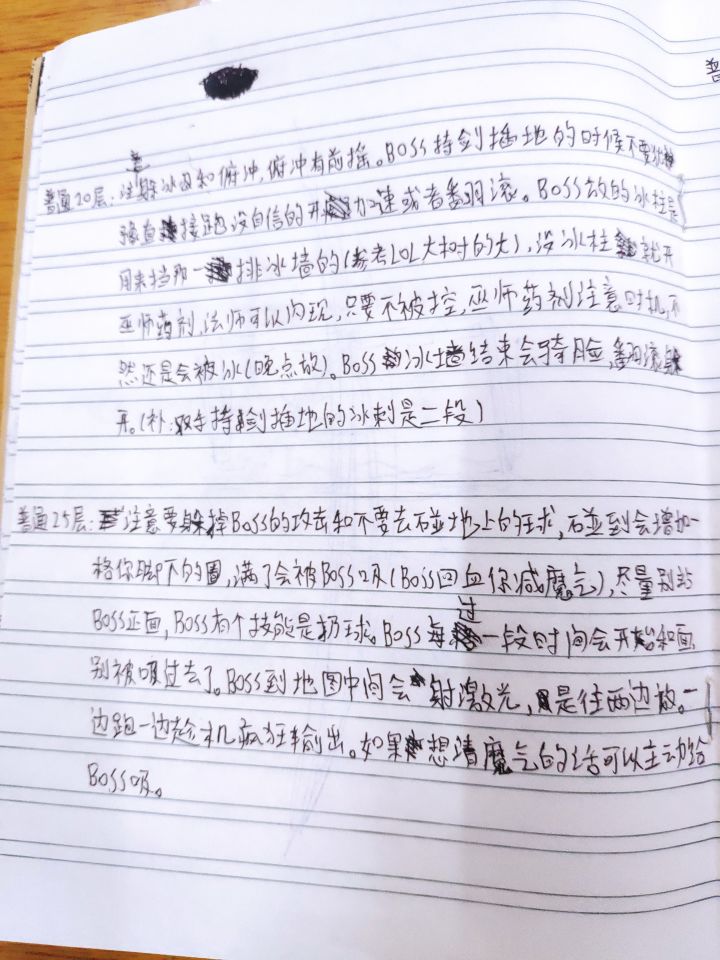 普
意
普通20层:注躲冰因和俯冲,俯冲有前摇。BOSS持剑插地的时候不要
接跑没自信的开加速或者番羽滚。BOSS放的冰柱是
用来挡那一排冰墙的(参考LOL大树的大),没冰柱就开
巫师药剂,法师可以闪现,只要不被控,巫师药剂注意时机,不
然还是会被冰(晚点放)。BOSS冰墙结束会骑脸,番羽滚躲
开。(补:双手持剑插地的冰刺是二段)
普通25层:注意要躲掉BOSS的攻击和不要去碰地上的球,碰到会增加一
格你脚下的圈,满了会被BOSS吸(BOSS回血你减魔气),尽量别站
过
BOSS正面,BOSS有个技能是扔球。BOSS每一段时间会开始和面
别被吸过去了。BOSS到地图中间会射激光,是往两边放。一
边跑一边趁机疯狂输出。如果想清魔气的话可以主动给
BOSS吸。